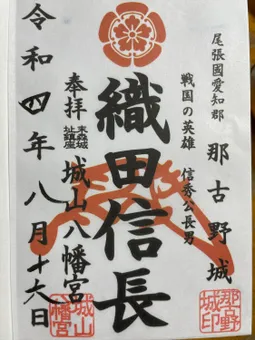 尾張國愛知郡
那古野城
戦国の英雄 信秀公長男
織田信長
奉拝 末森城址鎮座 城山八幡宮
令和四年八月十六日
那古野城印
城山八幡宮